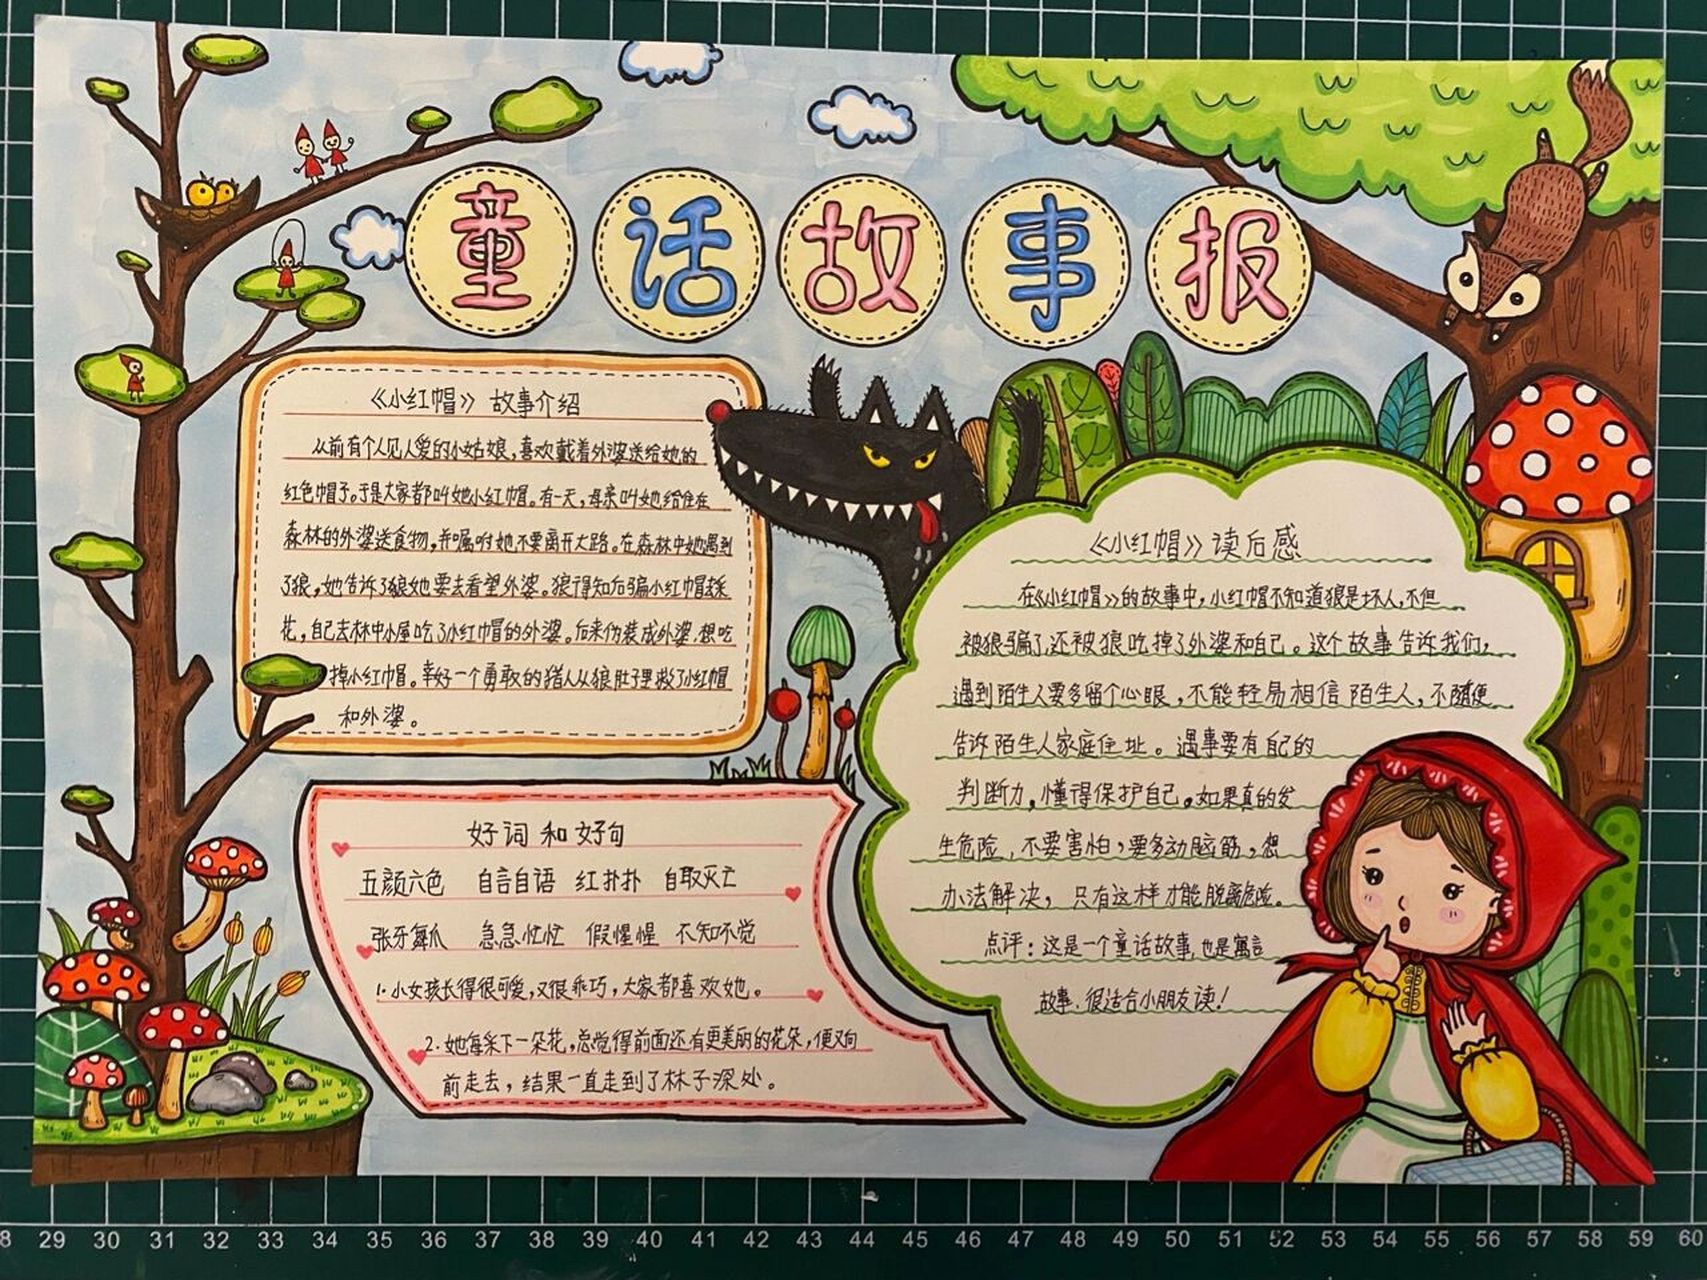 童话故事报
《小红帽》 故事介绍
从前有个人见人爱的小姑娘,喜欢戴着外婆送给她的
红色帽子。于是大家都叫她小红帽。有一天,母亲叫她给住在
森林的外婆送食物,并嘱咐她不要离开大路。在森林中她遇到
了狼,她告诉了狼她要去看望外婆。狼得知后骗小红帽去采
花,自己去林中小屋吃了小红帽的外婆。后来伪装成外婆,想吃
掉小红帽。幸好一个勇敢的猎人从狼肚子里救了小红帽
和外婆。
好词和好句
五颜六色 自言自语 红扑扑 自取灭亡
张牙舞爪 急急忙忙 假惺惺 不知不觉
1.小女孩长得很可爱,又很乖巧,大家都喜欢她。
2.她每采下一朵花,总觉得前面还有更美丽的花朵,便又向
前走去,结果一直走到了林子深处。
《小红帽》读后感
在《小红帽》的故事中,小红帽不知道狼是坏人,不但
被狼骗了,还被狼吃掉了外婆和自己。这个故事告诉我们,
遇到陌生人要多留个心眼,不能轻易相信陌生人,不随便
告诉陌生人家庭住址。遇事要有自己的
判断力,懂得保护自己。如果真的发
生危险,不要害怕,要多动脑筋,想
办法解决,只有这样才能脱离危险。
点评:这是一个童话故事,也是寓言
故事.很适合小朋友读!
8 29 30 31 32 33 34 35 36 37 38 39 40 41 42 43 44 45 46 47 48 49 50 51 52 53 54 55 56 57 58 59 60